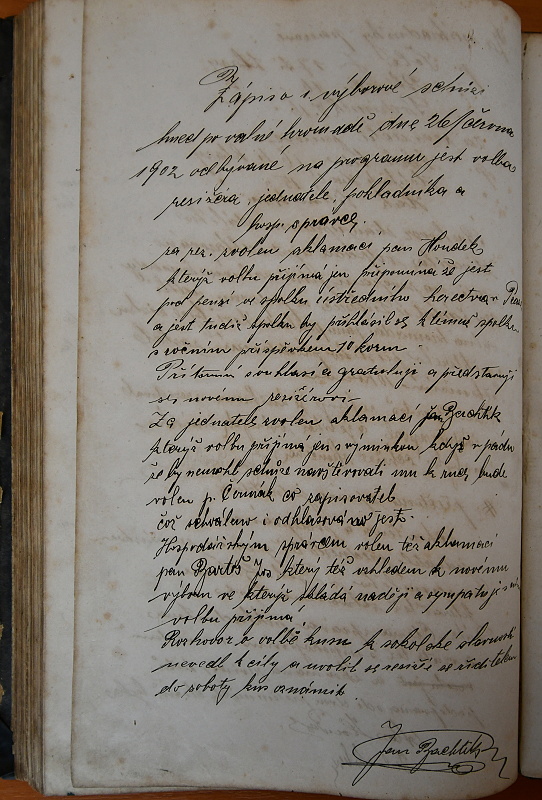 Zápis o výborové schůzi
hned po valné hromadě dne 26/června
1902 odbývané na programu jest volba
resiséra, jednatele, pokladníka a
hosp. správce.
za rez. zvolen aklamací pan Houdek
kterýž volbu přijímá jen připomíná že jest
pod penzí v spolku ústředního herectva v
a jest tudíž spolku by přihlásil se k témuž spolku
s ročním příspěvkem 10 korun.
Přítomní souhlasí a gratulují a představují
se novému resižérovi
Za jednatele zvolen aklamací Jan Bachtík
kterýž volbu přijímá jen s výminkou když v pádu
že by nemohl schůze navštěvovati mu k ruce bude
volen p. Čermák co zapisovatel
což schváleno i odhlasováno jest.
Hospodářským správcem volen též aklamací
pan Bartoš Jos který též vzhledem k novému
výboru ve kterýž skládá naději a sympatuje s ním
volbu přijímá
Rozhovor o volbě kusu k sokolské slavnosti
nevedl k cíly a uvolil se resiže se ředitelem
do soboty kus oznámit.
Jan Bachtík